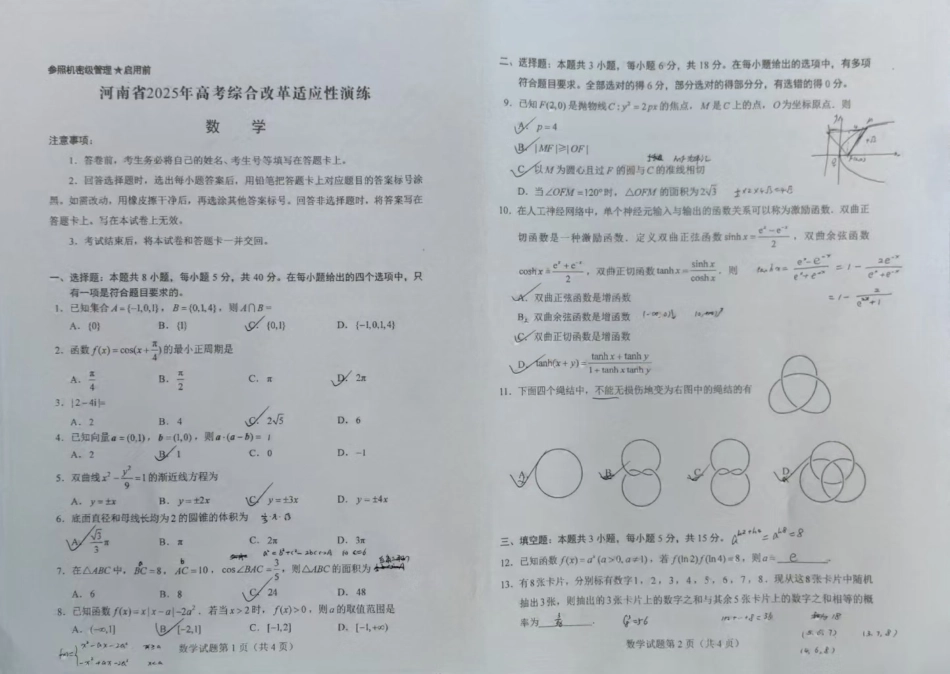 参照机密级管理★启用前
河南省2025年高考综合改革适应性演练
数 学
注意事项：
1．答卷前，考生务必将自己的姓名、考生号等填写在答题卡上。
2．回答选择题时，选出每小题答案后，用铅笔把答题卡上对应题目的答案标号涂
黑。如需改动，用橡皮擦干净后，再选涂其他答案标号。回答非选择题时，将答案写在
答题卡上。写在本试卷上无效。
3．考试结束后，将本试卷和答题卡一并交回。
一、选择题：本题共 8 小题，每小题 5 分，共 40 分。在每小题给出的四个选项中，只
有一项是符合题目要求的。
1．已知集合 A={-1,0,1}，B={0,1,4}，则 A∩B=
A．{0} B．{1} C．{0,1} D．{-1,0,1,4}
2．函数 f(x)=cos(x+π/4) 的最小正周期是
A．π/4 B．π/2 C．π D．2π
3．|2-4i|=
A．2 B．4 C．2√5 D．6
4．已知向量 a=(0,1)，b=(1,0)，则 a·(a-b)= 1
A．2 B．1 C．0 D．-1
5．双曲线 x²-y²/9=1 的渐近线方程为
A．y=±x B．y=±2x C．y=±3x D．y=±4x
6．底面直径和母线长均为 2 的圆锥的体积为
A．√3/3 π B．π C．2π D．3π
7．在△ABC 中，BC=8，AC=10，cos∠BAC=3/5，则△ABC 的面积为
A．6 B．8 C．24 D．48
8．已知函数 f(x)=x|x-a|-2a²．若当 x>2 时，f(x)>0，则 a 的取值范围是
A．(-∞,1] B．[-2,1] C．[-1,2] D．[-1,+∞)
x²-ax-2a² x≥a
-x²+ax-2a² x<a
数学试题第 1 页（共 4 页）
二、选择题：本题共 3 小题，每小题 6 分，共 18 分。在每小题给出的选项中，有多项
符合题目要求。全部选对的得 6 分，部分选对的得部分分，有选错的得 0 分。
9．已知 F(2,0) 是抛物线 C：y²=2px 的焦点，M 是 C 上的点，O 为坐标原点．则
A．p=4
B．|MF|≥|OF|
C．以 M 为圆心且过 F 的圆与 C 的准线相切
D．当∠OFM=120°时，△OFM 的面积为 2√3
10．在人工神经网络中，单个神经元输入与输出的函数关系可以称为激励函数．双曲正
切函数是一种激励函数．定义双曲正弦函数 sinh x=(eˣ-e⁻ˣ)/2，双曲余弦函数
cosh x=(eˣ+e⁻ˣ)/2，双曲正切函数 tanh x=sinh x/cosh x．则
A．双曲正弦函数是增函数
B．双曲余弦函数是增函数
C．双曲正切函数是增函数
D．tanh(x+y)=(tanh x+tanh y)/(1+tanh x tanh y)
11．下面四个绳结中，不能无损伤地变为右图中的绳结的有
A B C D
三、填空题：本题共 3 小题，每小题 5 分，共 15 分。
12．已知函数 f(x)=aˣ(a>0,a≠1)，若 f(ln2)f(ln4)=8，则 a= e ．
13．有 8 张卡片，分别标有数字 1，2，3，4，5，6，7，8．现从这 8 张卡片中随机
抽出 3 张，则抽出的 3 张卡片上的数字之和与其余 5 张卡片上的数字之和相等的概
率为
(3,7,8)
(4,6,8)
数学试题第 2 页（共 4 页）